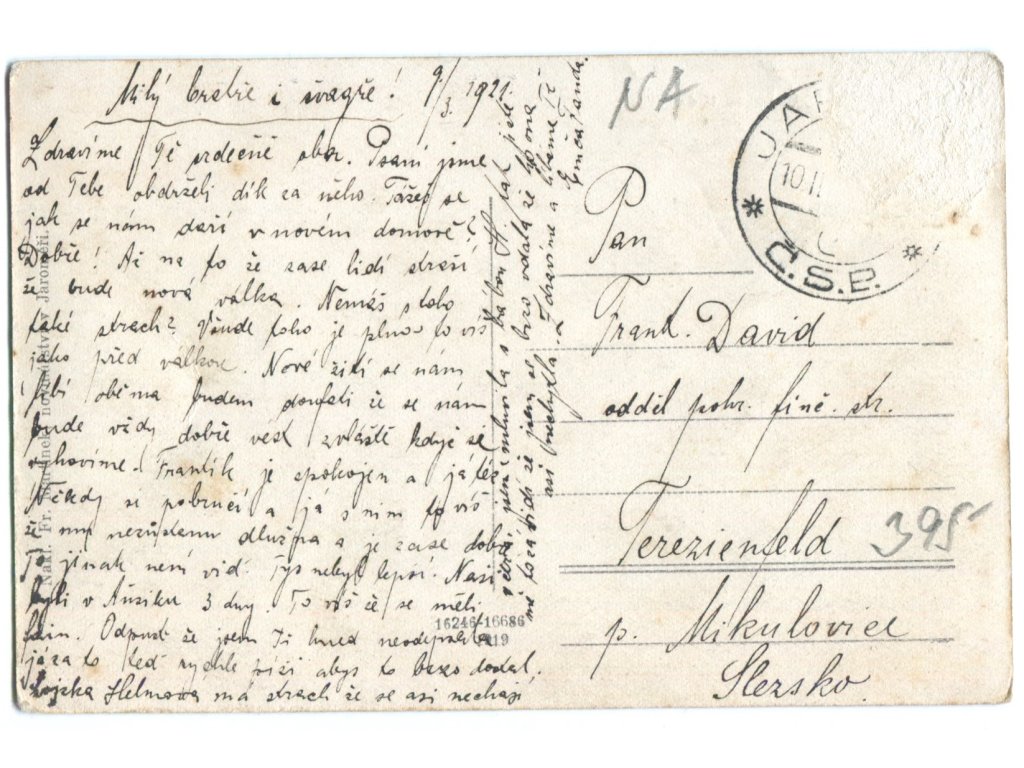 Milý bratře i švagře! 9/3. 1921.
Zdravíme Tě srdečně oba. Psaní jsme
od Tebe obdrželi dík za něho. Tážeš se
jak se nám daří v novém domově?
Dobře! Až na to že zase lidí straší
že bude nová válka. Nemáš z toho
také strach? Všude toho je plno to víš
jako před válkou. Nové žití se nám
líbí oběma budem doufati že se nám
bude vždy dobře vest zvláště když si
vyhovíme. Frantík je spokojen a já též
Někdy si pobručí a já s ním to víš
že mu nezůstanu dlužna a je zase dobře
To jinak není viď? Tys nebyl lepší. Naši
byli v 3 dny. To víš že se měli
fain. Odpusť že jsem Ti hned neodepsala
já za to teď rychle píši abys to brzo dostal.
Helmova má strach že se asi nechají
jsem mluvila s bábou H tak jistě
že jsem se brzo vdala že ona
asi nechytla. Zdravíme a líbáme Tě
Fanda.
Nakl. Fr. novoměstv. Jaroměři.
16246-16686
A19
NA
JAR
10.II
Č.S.P.
Pan
Frant. David
odděl pohr. finč. str.
Terezienfeld
395-
p. Mikulovice
Slezsko.